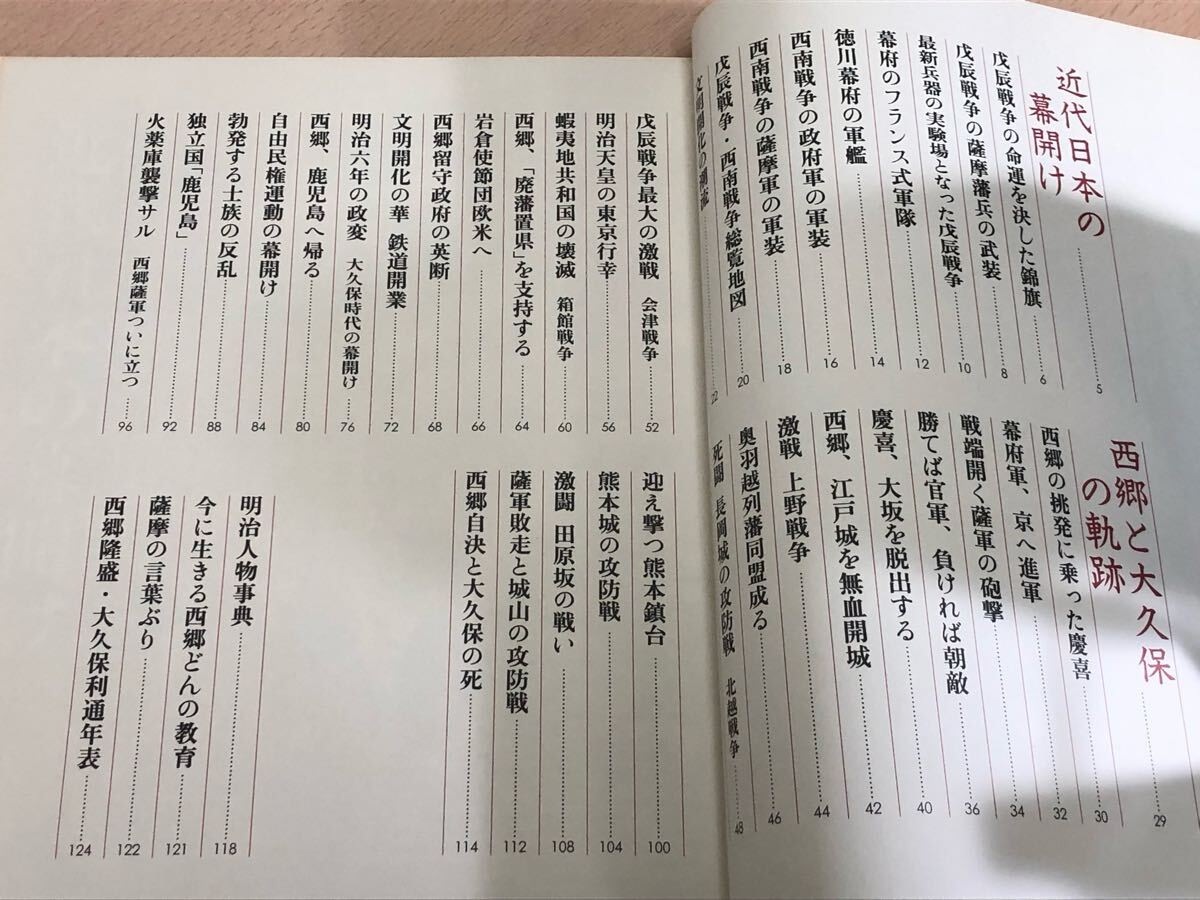 近代日本の
幕開け……5
戊辰戦争の命運を決した錦旗……6
戊辰戦争の薩摩藩兵の武装……8
最新兵器の実験場となった戊辰戦争……10
幕府のフランス式軍隊……12
徳川幕府の軍艦……14
西南戦争の政府軍の軍装……16
西南戦争の薩摩軍の軍装……18
戊辰戦争・西南戦争総覧地図……20
文明開化の……22
西郷と大久保
の軌跡……29
西郷の挑発に乗った慶喜……30
幕府軍、京へ進軍……32
戦端開く薩軍の砲撃……34
勝てば官軍、負ければ朝敵……36
慶喜、大坂を脱出する……40
西郷、江戸城を無血開城……42
激戦 上野戦争……44
奥羽越列藩同盟成る……46
死闘 長岡城の攻防戦 北越戦争……48
戊辰戦争最大の激戦 会津戦争……52
明治天皇の東京行幸……56
蝦夷地共和国の壊滅 箱館戦争……60
西郷、「廃藩置県」を支持する……64
岩倉使節団欧米へ……66
西郷留守政府の英断……68
文明開化の華 鉄道開業……72
明治六年の政変 大久保時代の幕開け……76
西郷、鹿児島へ帰る……80
自由民権運動の幕開け……84
勃発する士族の反乱……88
独立国「鹿児島」……92
火薬庫襲撃サル 西郷薩軍ついに立つ……96
迎え撃つ熊本鎮台……100
熊本城の攻防戦……104
激闘 田原坂の戦い……108
薩軍敗走と城山の攻防戦……112
西郷自決と大久保の死……114
明治人物事典……118
今に生きる西郷どんの教育……121
薩摩の言葉ぶり……122
西郷隆盛・大久保利通年表……124